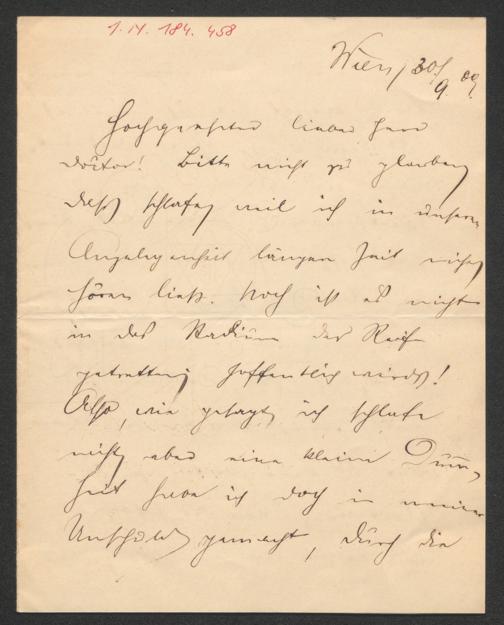 1. IX. 184. 458
Wien, 30/9 09.
Hochgeehrter lieber Herr
Doctor! Bitte nicht zu glauben
daß schlafe, weil ich in unserer
Angelegenheit längere Zeit nichts
hören ließ. Noch ist es nicht
in das Stadium der Reife
getretten; hoffentlich wirds!
Also, wie gesagt, ich schlafe
nicht, aber eine kleine Dum,
heit habe ich doch in meiner
Unschuld gemacht, durch die